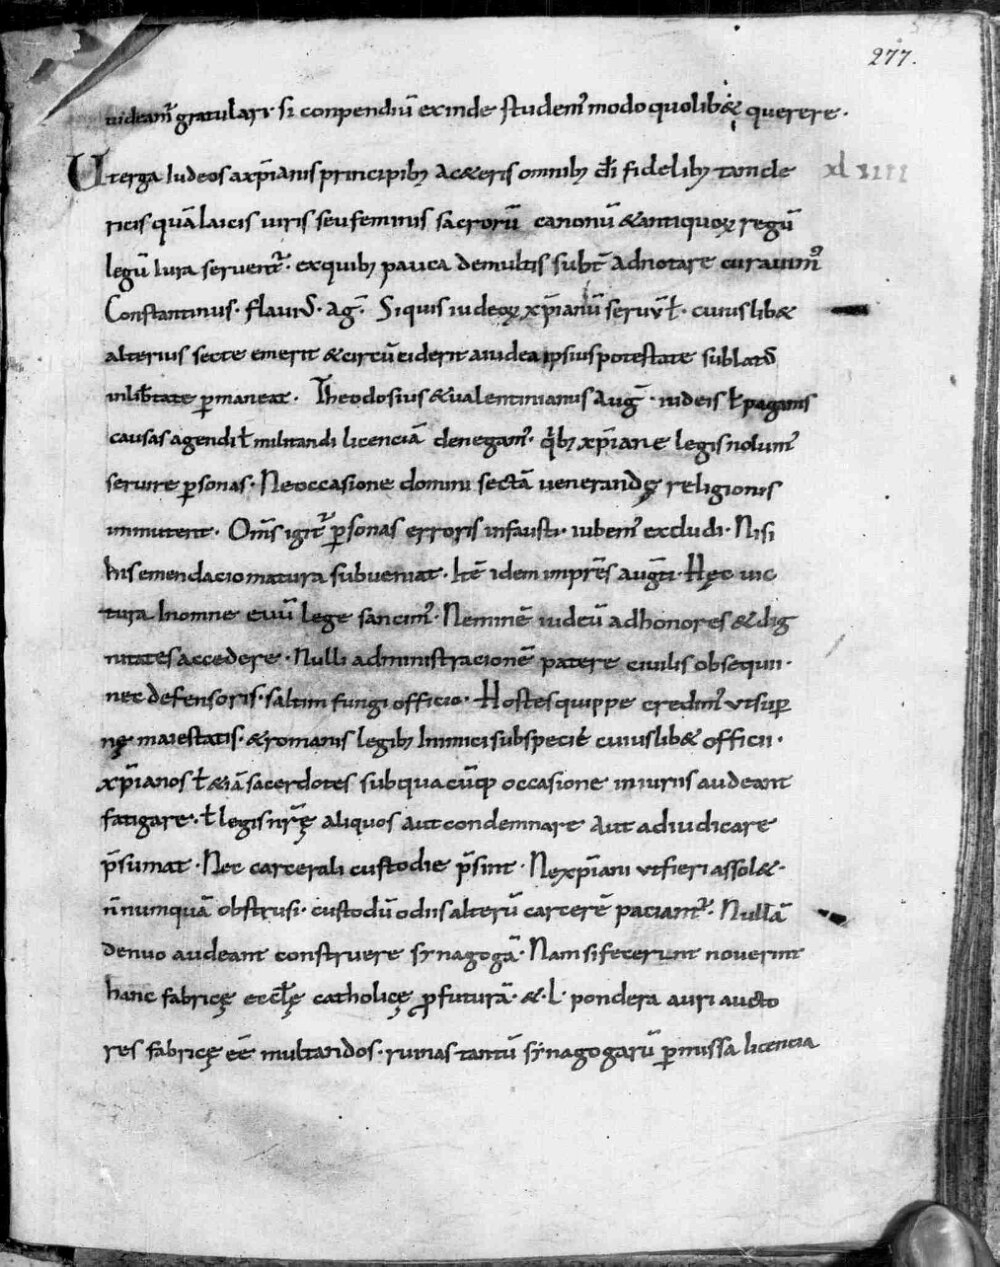 277.
uideam̅ gratulari si conpendiu̅ exinde studem̅ modo quolib& querere.
Ut erga Iudeos a xp̅ianis principib; ac &eris omnib; d̅i fidelib; tam cle xl iiii
ricis qua̅ laicis uiris seu feminis sacroru̅ canonu̅ & antiquoꝝ regu̅
legu̅ Iura seruent̅. ex quib; pauca de multis subt̅ adnotare curauim᾽
Constantinus. flauiꝰ. ag̅. Siquis iudeoꝝ xp̅ianu̅ seruu̅ ł. cuiuslib&
alterius secte emerit & circu̅ciderit a iudea ipsius potestate sublatꝰ
in lib̅tate p̲maneat. Theodosius & ualentinianus Aug̅. iudeis ł paganis
causas agendi ł militandi licencia̅ denegam᾽. q̅b; xp̅iane legis nolum᾽
seruire p̲sonas. Ne occasione domini secta̅ uenerandę religionis
inmutent. Om̅s igit᷑ p̲sonas erroris infausti. iubem᾽ excludi. Nisi
his emendacio matura subueniat. Ite̅ idem imp̅res aug̅ti. Hęc uic
tura In omne euu̅ lege sancim᾽. Nemine̅ iudeu̅ ad honores & dig
nitates accedere. Nulli administracione̅ patere ciuilis obsequii.
nec defensoris. saltim fungi officio. Hostes quippe credim᾽ ut sup̲
nę maiestatis. & romanis legib; Inimici sub specie cuiuslib& officii.
xp̅ianos ł &ia̅ sacerdotes sub quacu̅q; occasione iniuriis audeant
fatigare. ł legis nr̅ę aliquos aut condemnare Aut adiudicare
p̅sumat. Nec carcerali custodie p̅sint. Ne xp̅iani ut fieri assol&.
n̅numqua̅ obstrusi. custodu̅ odiis alteru̅ carcere̅ paciant᷑. Nulla̅
denuo audeant construere synagoga̅. Nam si fecerunt nouerint
hanc fabricę eccl̅ę catholicę ꝓfutura̅. &. L. pondera auri aucto
res fabricę ee̅ multandos. ruinas tantu̅ synagogaru̅ p̲missa licencia